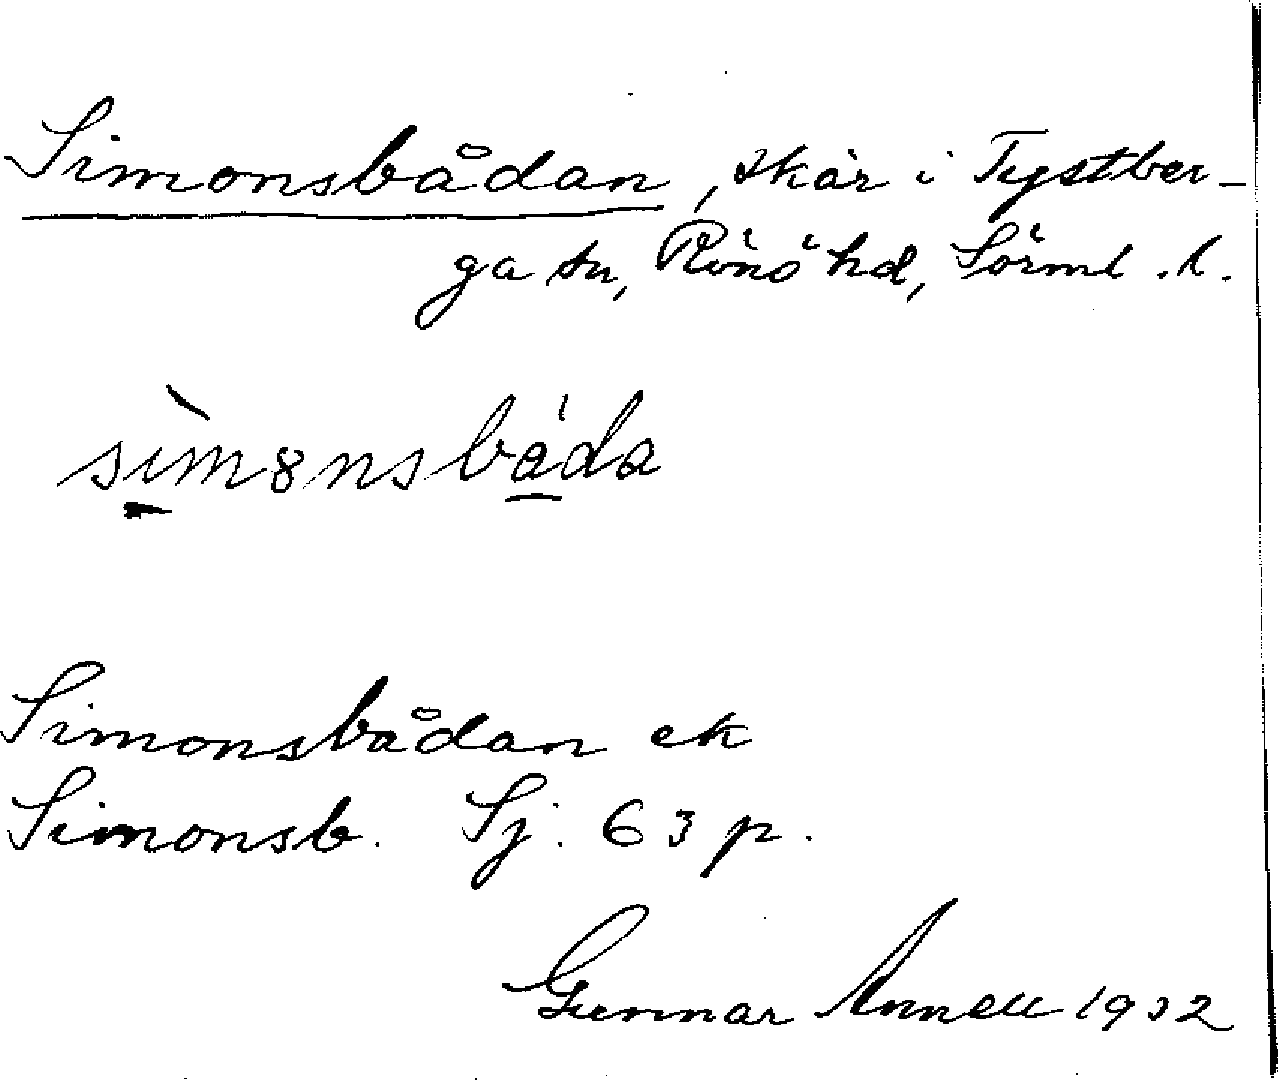 Simonsbådan, skär i Tystber-
ga sn, Rönö hd, Sörml. l.
sìmonsbåda
Simonsbådan ek
Simonsb. Sj. 63 p.
Gunnar Annell 1932